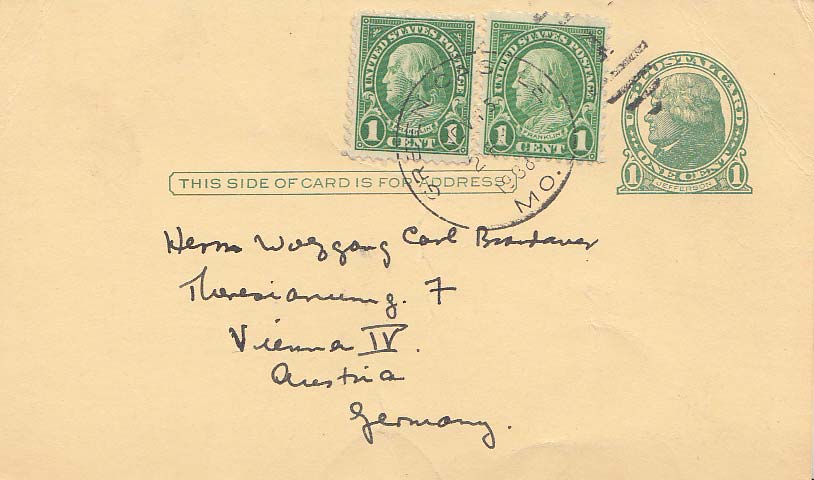 UNITED STATES POSTAGE
1 FRANKLIN 1
CENT
UNITED STATES POSTAGE
1 FRANKLIN 1
CENT
U.S. POSTAL CARD
ONE CENT
1 JEFFERSON 1
1938
MO.
THIS SIDE OF CARD IS FOR ADDRESS
Herrn Wolfgang Carl
Theresianumg. 7
Vienna IV.
Austria
Germany.